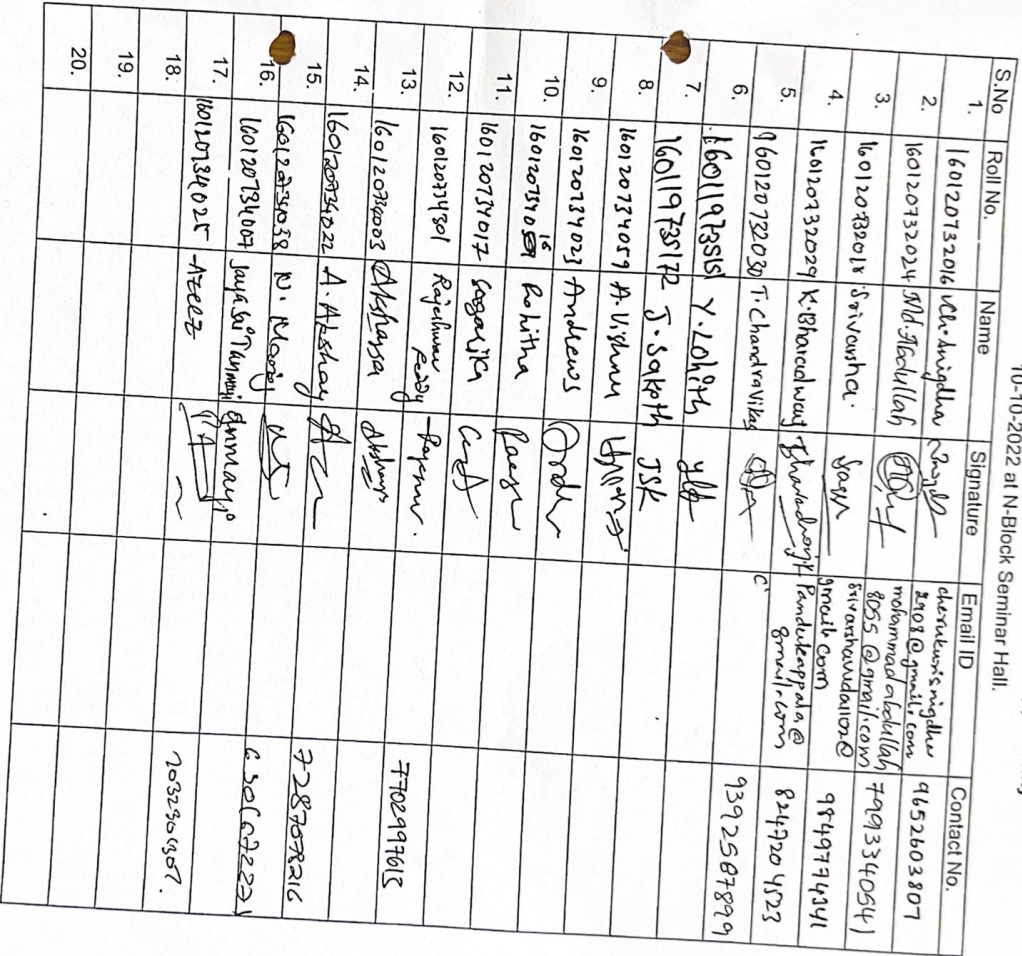 10-10-2022 at N-Block Seminar Hall.
S.No Roll No. Name Signature Email ID Contact No.
1. 160120732016 Ch. Snigdha cherukurisnigdha 2908@gmail.com 9652603807
2. 160120732024 Md. Abdullah mohammadabdullah 8055@gmail.com 7993340541
3. 160120732018 Srivarsha. srivarshavudali02@ gmail.com 9849774341
4. 160120732029 K. Bharadwaj Pandukappala@ gmail.com 824720 4523
5. 160120732030 T. Chandra Vikas 9392587899
6. 160119735151 Y. Lohith
7. 160119735172 J. Saketh JSK
8. 160120734059 A. Vishnu
9. 160120734023 Andrews
10. 160120734016 Rohitha
11. 160120734017 Sagarika
12. 160120734301 Rajeshwar Reddy
13. 160120734003 Akshaya 7702997615
14. 160120734021 A. Akshay
15. 160120734038 N. Manoj 7287078216
16. 160120734007 Jaya Sai Tanmayi 6301672221
17. 160120734025 Azeez
18. 
19.
20.